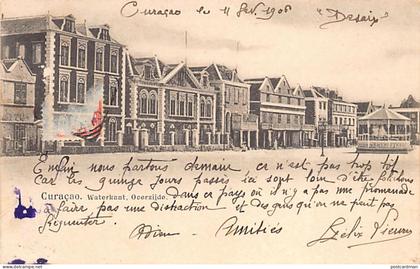 Curaçao le 11 Fév. 1906 "Desaix"
Enfin nous partons demain ce n'est pas trop tôt
Car les quinze jours passés ici sont loin d'être folâtres
Curaçao. Waterkant, Overzijde.
Dans ce pays où il n'y a pas une promenade
à faire, pas une distraction et des gens qu'on ne peut pas
fréquenter.
Amitiés
Félix